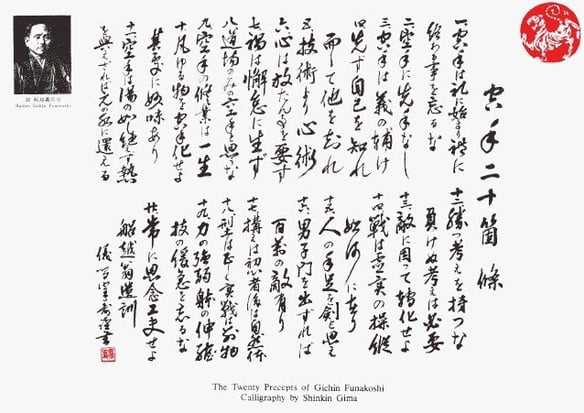 空手二十箇條
一空手は礼に始り礼に
終る事を忘るな
二空手に先手なし
三空手は義の輔け
四先づ自己を知れ
而して他を知れ
五技術より心術
六心は放たん事を要す
七禍は懈怠に生ず
八道場のみの空手と思ふな
九空手の修業は一生
十凡ゆる物を空手化せよ
其処に妙味あり
十一空手は湯の如し絶えず熱
を与えざれば元の水に還える
十二勝つ考えを持つな
負けぬ考えは必要
十三敵に因って転化せよ
十四戦は虚実の操縦
如何に在り
十五人の手足を剣と思え
十六男子門を出ずれば
百万の敵有り
十七構えは初心者後は自然体
十八型は正しく実戦は別物
十九力の強弱躰の伸縮
技の緩急を忘るな
廿常に思念工夫せよ
船越翁遺訓
Gichin Funakoshi
The Twenty Precepts of Gichin Funakoshi
Calligraphy by Shinkin Gima